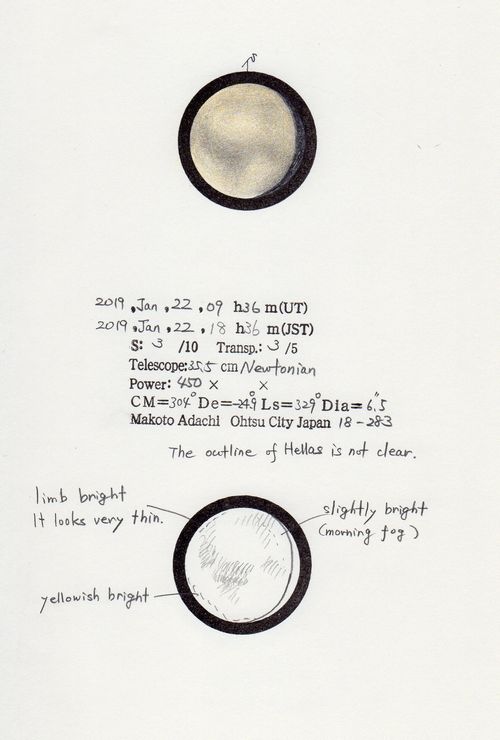 2019, Jan, 22, 09 h36 m(UT)
2019, Jan, 22, 18 h36 m(JST)
S: 3 /10 Transp.: 3 /5
Telescope: 35.5 cm Newtonian
Power: 450 × ×
CM=304° De=-24.9° Ls=329° Dia= 6.5"
Makoto Adachi Ohtsu City Japan 18-283
The outline of Hellas is not clear.
limb bright
It looks very thin.
slightly bright
(morning fog)
yellowish bright